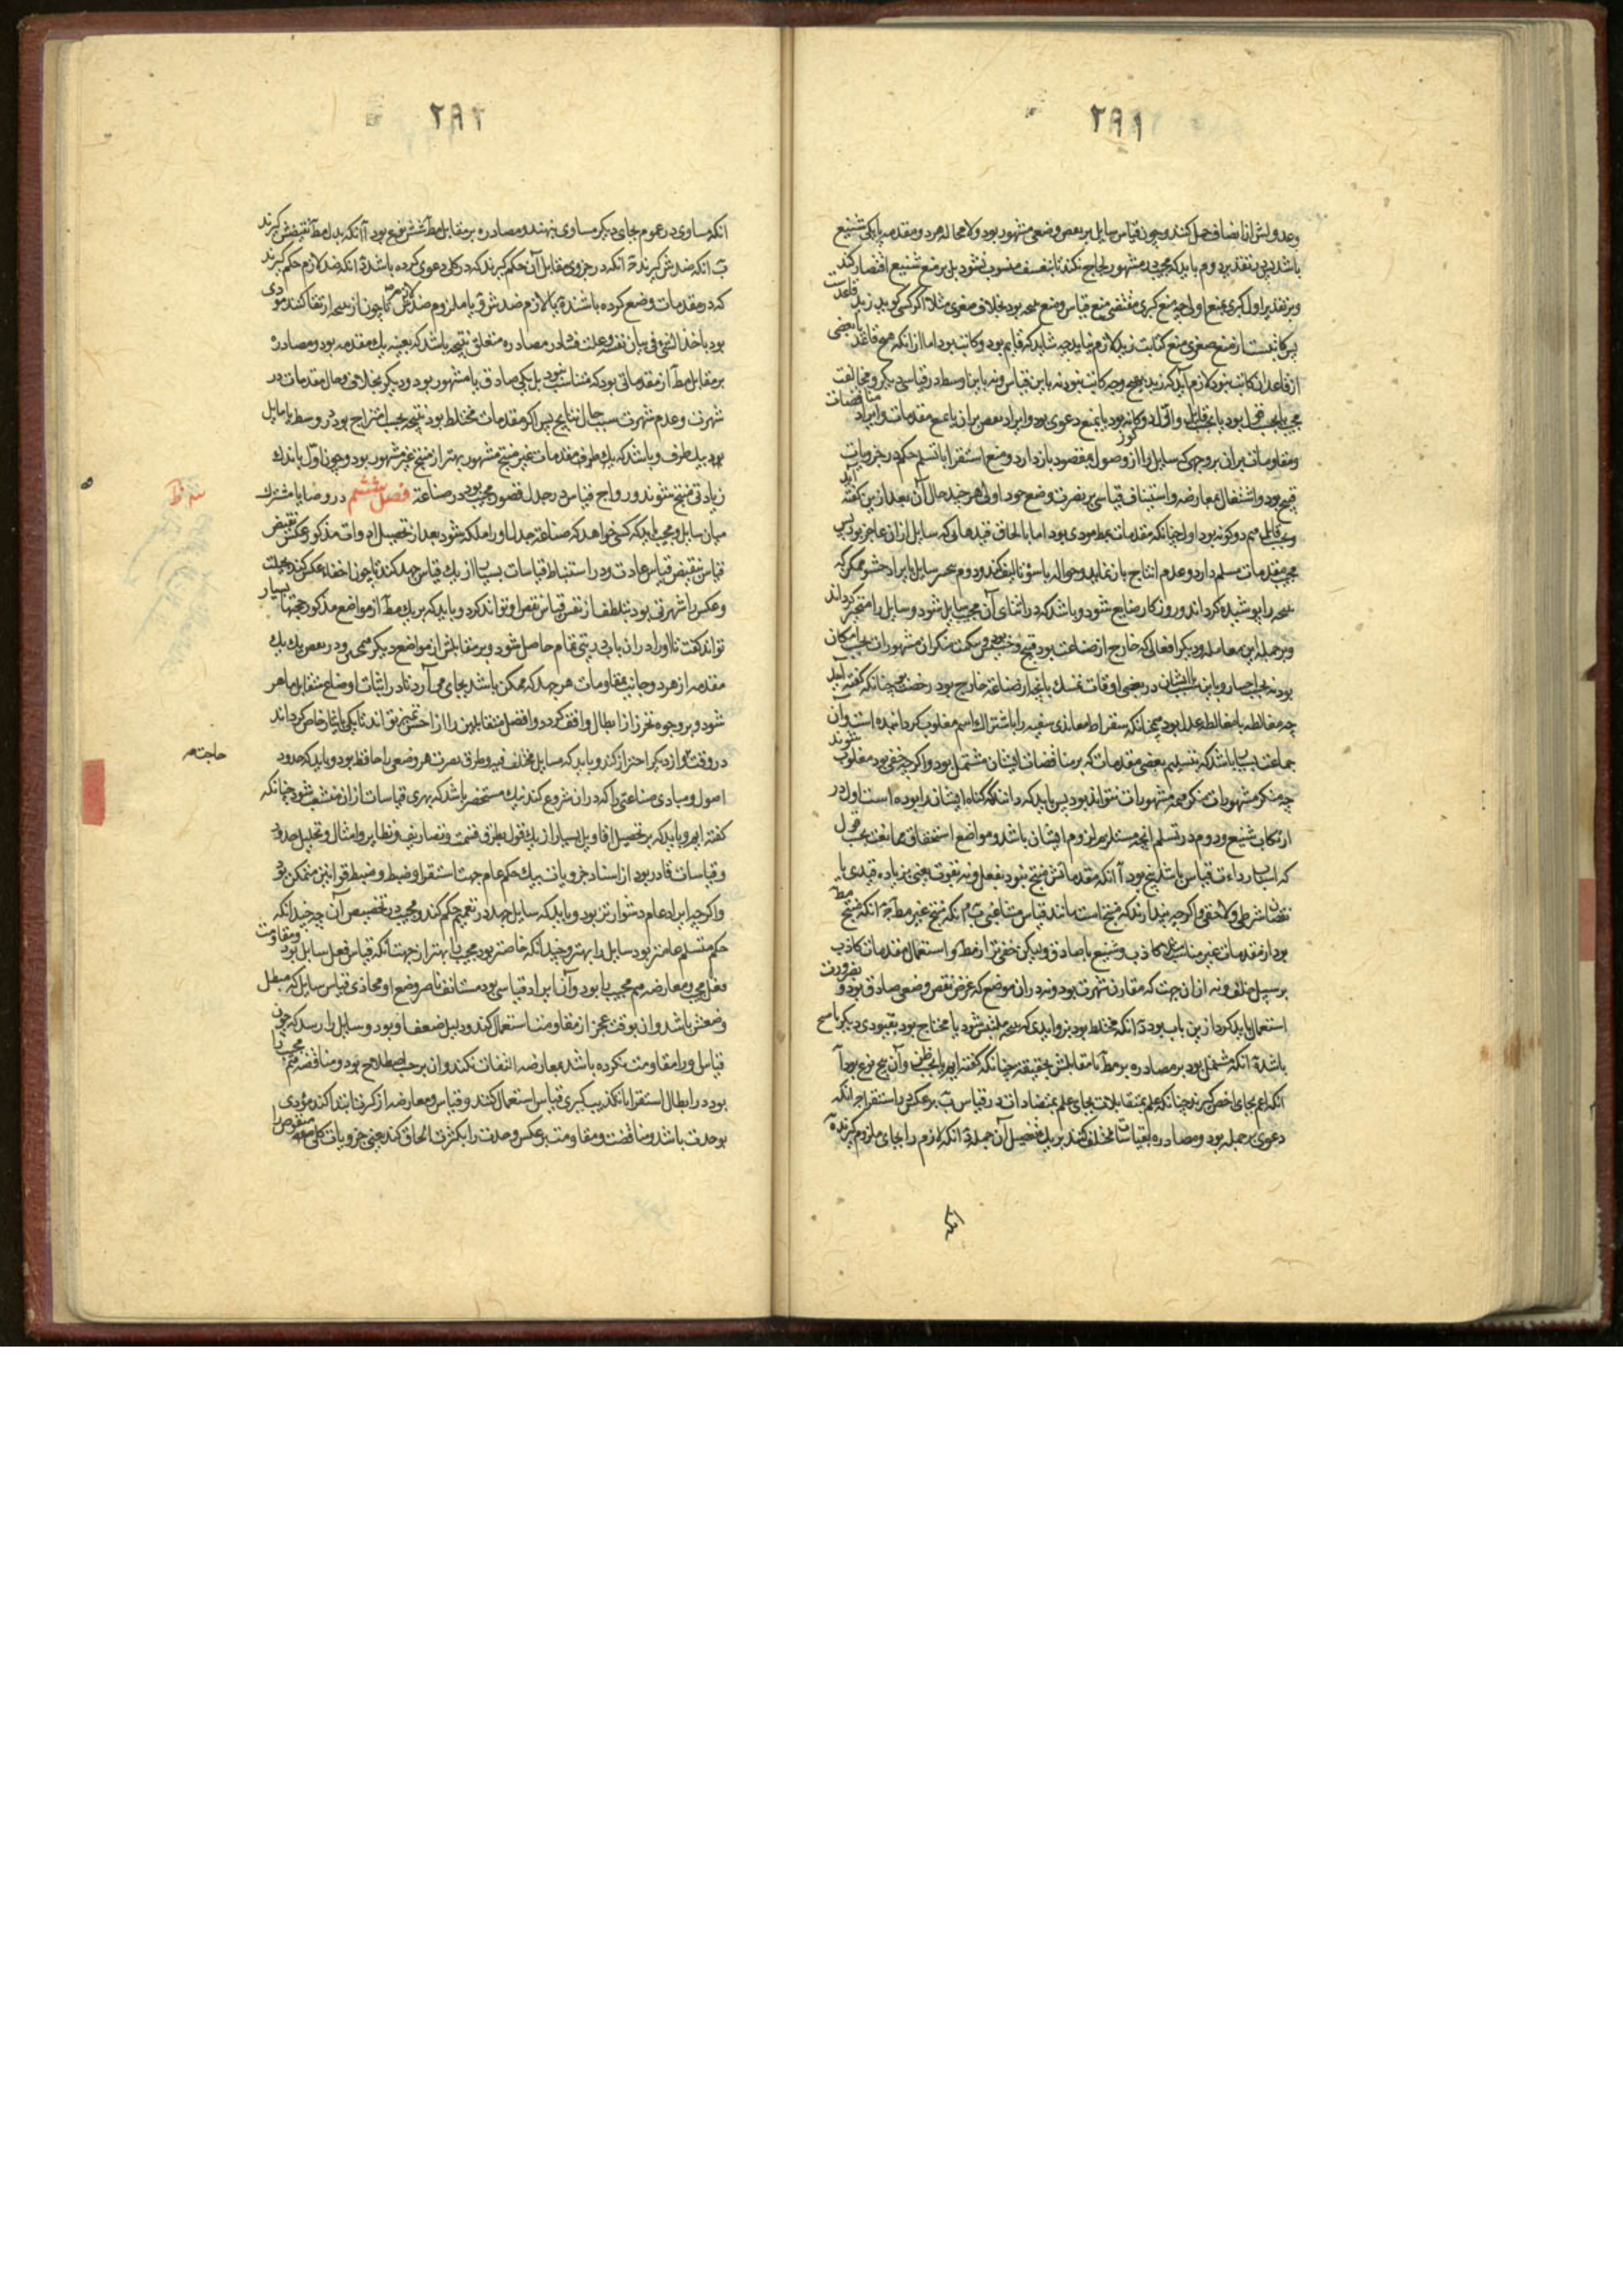 ۲۹۱
وعدولش از انصاف حمل کنند و چون قیاس سایل بر نقض وضعی مشهور بود ولا محاله هر دو مقدمه یا یکی شنیع
باشد پس بتقدیر دوم باید که مجیب در مشهور لجاج نکند تا بتعسف منسوب نشود بل بر منع شنیع اقتصار کند
وبر تقدیر اول کبری بمنع اولی چه منع کبری مقتضی منع قیاس و وضع نتیجه بود بخلاف صغری مثلا اگر کسی گوید زید قاعدست
پس کاتبست از منع صغری منع کتابت زید لازم نیاید چه شاید که قایم بود و کاتب بود اما از انکه هیچ قاعد
از قاعدان کاتب نبود لازم آید که زید بهیچ وجه کاتب نبود نه باین قیاس و نه باین اوسط در قیاسی دیگر و مخالفت
مجیب یا بحسب قول بود یا بحسب قایل و اول دو گونه بود یا بمنع دعوی بود و ایراد نقض بران یا بمنع مقدمات و ایراد مناقضات
ومقاومات بران بر وجهی که سایل را از وصول بمقصود باز دارد و منع استقرا با تسلیم حکم در جزویات
قبیح بود و اشتغال بمعارضه و استیناف قیاسی بر نصرت وضع خود اولی هر چند حال آن بعد ازین گفته آید
وبحسب قایل هم دو گونه بود اول چنانکه مقدمات بمط مودی بود اما با الحاق قیدهائی که سایل ازان عاجز بود پس
مجیب مقدمات مسلم دارد و عدم انتاج باز نماید و حواله با سوء تالیف کند و دوم تحیر سایل بایراد حشو ممکن که
نتیجه را پوشیده گرداند و روزگار ضایع شود و باشد که در اثنای آن مجیب سایل شود و سایل را متحیر گرداند
وبر جمله این معامله و دیگر افعالی که خارج از صناعت بود قبیح و خسیس بود و تبکیت منکران مشهورات بحسب امکان
بود نه بحسب اختیار و باین سبب با ایشان در بعضی اوقات تمسک بانچه از صناعة خارج بود رخصتست چنانکه گفته آمد
چه مغالطه با مغالط عدل بود همچنانکه سقراط معاندی سفیه را باشتراک اسم مغلوب گردانیده است و ان
جماعت بسیار باشد که بتسلیم بعضی مقدمات که بر مناقضات ایشان مشتمل بود و اگر چه خفی بود مغلوب شوند
چه منکر مشهورات منکر همه مشهورات نتواند بود پس باید که دانند که گناه ایشان را بوده است اول در
ارتکاب شنیع و دوم در تسلیم آنچه مستلزم لزوم ایشان باشد و مواضع استحقاق ممانعت بحسب قول
که اسباب رداءت قیاس باشد پنج بود آ انکه مقدماتش منتج نبود نه بفعل و نه بقوت یعنی نه بزیاده قیدی یا
نقصان شرطی و لاحقی و اگر چه پندارند که منتج است مانند قیاس مشاغبی ب انکه منتج غیر مط ج انکه منتج مط
بود از مقدمات غیر مناسب مثلا کاذب و شنیع یا صادق ولیکن خفی تر از مط و استعمال مقدمات کاذب
بر سبیل خلف و نه ازان جهت که مقارن شهرت بود و نه دران موضع که غرض نقض وضعی صادق بود و بضرورت
استعمال باید کرد ازین باب بود د انکه مختلط بود بزوایدی که نتیجه ملتبس شود یا محتاج بود بقیودی دیگر تا منتج
باشد ه انکه مشتمل بود بر مصادره بر مط یا مقابلش بحقیقة چنانکه گفته ایم یا بحسب ظن و آن پنج نوع بود آ
انکه اعم بجای اخص گیرند چنانکه علم بمتقابلات بجای علم بمتضادات در قیاس ب بر عکس در استقرا ج انکه
دعوی بر جمله بود و مصادره بقیاسات مختلف کنند بر یک تفصیل آن جمله د انکه لازم را بجای ملزوم گیرند ه
انکه
۲۹۲
انکه مساوی در عموم بجای دیگر مساوی بنهند و مصادره بر مقابل مط شش نوع بود آ انکه بدل مط نقیضش گیرند
ب انکه ضدش گیرند ج انکه در جزوی مقابل آن حکم گیرند که در کل دعوی کرده باشد د انکه ضد لازم حکم گیرند
که در مقدمات وضع کرده باشند
بود باخذ الشئ فی بیان نفسه و علت فساد در مصادره متعلق بنتیجه باشد که بعینه یک مقدمه بود و مصادره
بر مقابل مط از مقدماتی بود که متناسب نبود بل یکی صادق یا مشهور بود و دیگر بخلاف و حال مقدمات در
شهرت و عدم شهرت سبب حال نتایج پس اگر مقدمات مختلط بود نتیجه بحسب امتزاج بود در وسط یا مایل
بود بیک طرف و باشد که یک طرف مقدمات غیر منتج مشهور بهتر از منتج غیر مشهور بود و چون اول باندک
زیادتی منتج شوند و رواج قیاس در جدل قصور مجیب بود در صناعة فصل ششم در وصایا مشترک
میان سایل و مجیب باید که کسی خواهد که صناعت جدل اورا ملکه شود بعد از تحصیل ادوات مذکور عکس نقیض
قیاس بنقیض قیاس عادت و در استنباط قیاسات بسیار از یک قیاس جهد کند تا چون اخفاء عکس کند بعجلت
وعکس را شهرتی بود بتلطف از نقض قیاس نقض او تواند کرد و باید که بر یک مط از مواضع مذکور حجتها بسیار
تواند گفت تا اورا دران باب دربتی تمام حاصل شود و بر مقابلش از مواضع دیگر همچنین و در نقض یک یک
مقدمه از هر دو جانب مقاومات هر چند که ممکن باشد بجای می آرد تا در اثبات اوضاع متقابل ماهر
شود و بر وجوه تحرز از ابطال واقف گردد و افضل متقابلین را از اخس تمییز تواند تا یکی بایثار خاص گرداند
در وقت و از دیگر احتراز کند و باید که مسایل مختلف فیه و طرق نصرت هر وضعی را حافظ بود و باید که حدود
حاجت
اصول و مبادی صناعتی را که دران شروع کند نیک مستحضر باشد که بهری قیاسات ازان منشعب شود چنانکه
گفته ایم و باید که بر تحصیل اقاویل بسیار از یک قول بطرق قسمت و تصاریف و نظایر و امثال و تحلیل حدود
وقیاسات قادر بود از اسناد جزویات بیک حکم عام جهت استقرا و ضبط و ضبط قوانین متمکن بود
واگر چه ایراد عام دشوارتر بود و باید که سایل جهد در تعمیم حکم کند و مجیب در تخصیص آن چه چندانکه
حکم متسلم عامتر بود سایل را بهتر و چندانکه خاصتر بود مجیب را بهتر از جهت انکه قیاس فعل سایل بود و مقاومت
فعل مجیب و معارضه هم مجیب را بود و آن ایراد قیاسی بود مستانف ناصر وضع او محاذی قیاس سایل که مبطل
وضعش باشد و ان بوقت عجز از مقاومت استعمال کند و دلیل ضعف او بود و سایل را رسد که چون
قیاس او را مقاومت نکرده باشد بمعارضه التفات نکند و ان بر حسب اصطلاح بود و مناقضه هم مجیب را
بود در ابطال استقرا یا تکذیب کبری قیاس استعمال کنند و قیاس و معارضه از کثرت ابتدا کند مؤدی
بوحدت باشد و مناقضت و مقاومت بر عکس وحدت را بکثرت الحاق کند یعنی جزویات کلی منقوض را